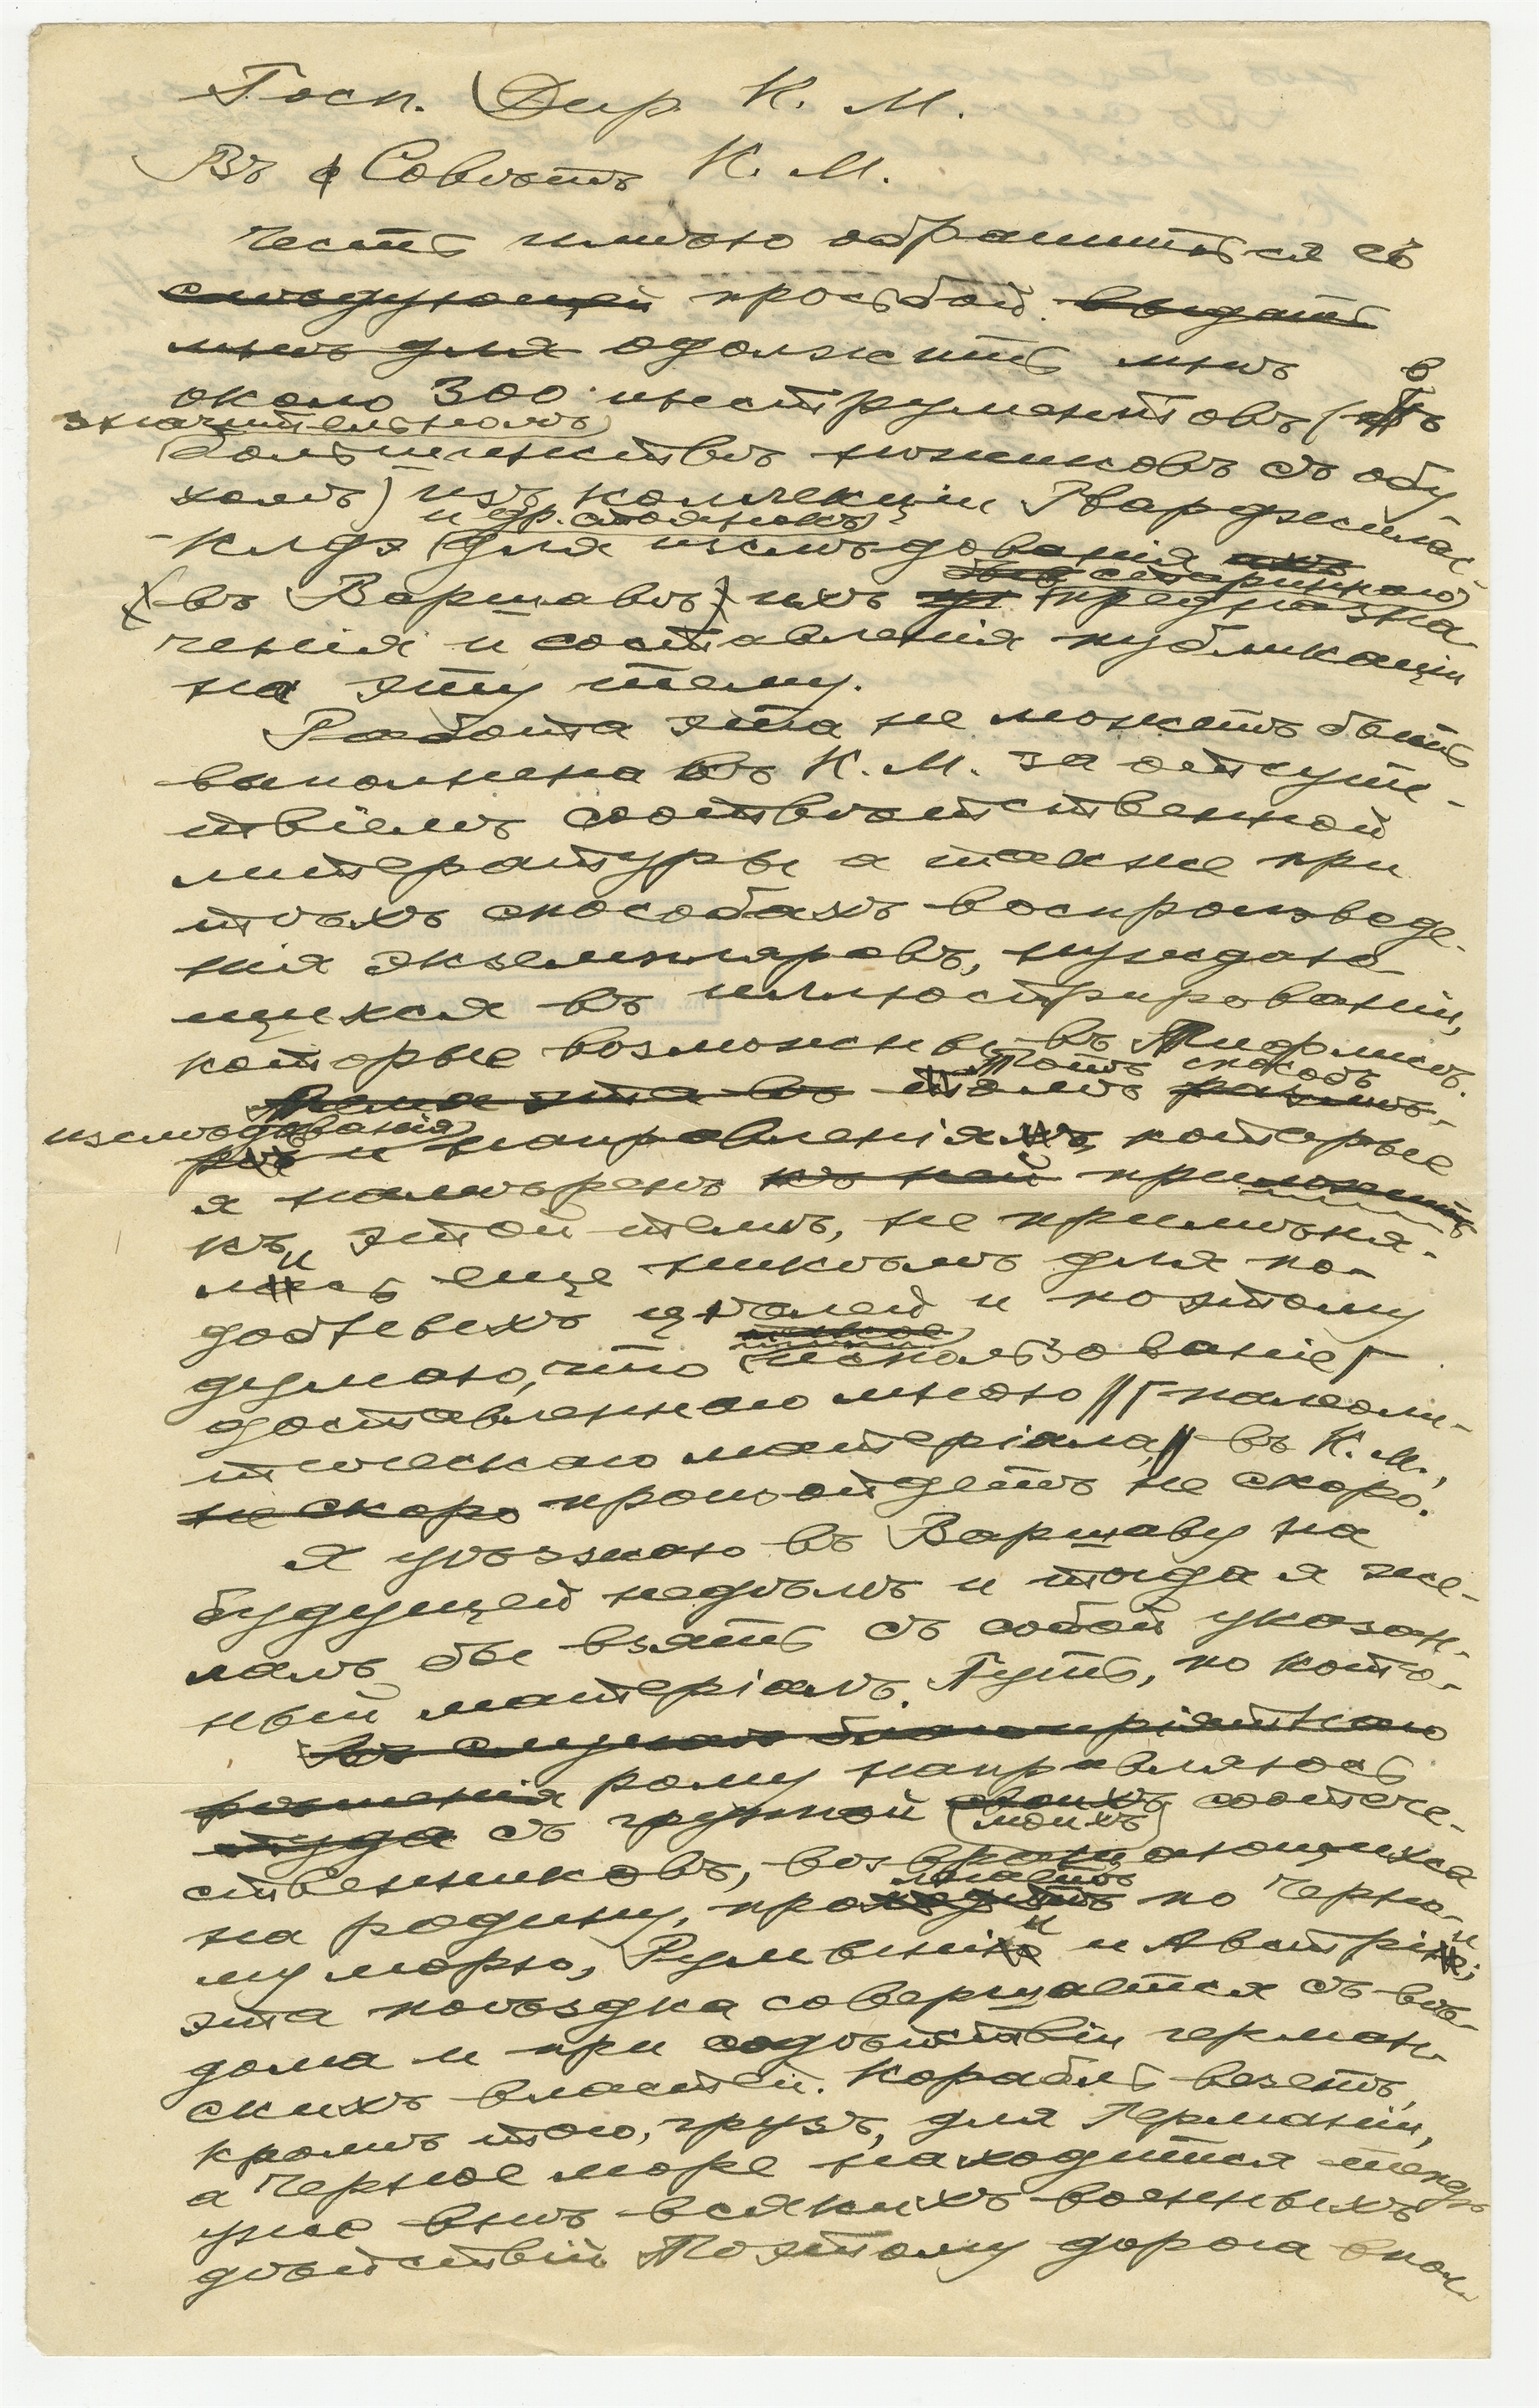 Госп. Дир. К. М.
Въ Совѣтъ К. М.
Честь имѣю обратиться съ
слѣдующей просьбой. выдать
мнѣ для одолжить мнѣ
в
около 300 инструментовъ (въ
значительномъ
большинствѣ ножиковъ съ обу
хомъ) изъ коллекціи Гварджилас
и др. стоянокъ
-Клдэ для изслѣдованія ихъ
старинного
въ Варшавѣ) ихъ предназна
ченія и составленія публикаціи
на эту тему.
Работа эта не можетъ быть
выполнена въ К. М. за отсутс-
твіемъ соотвѣтственной
литературы а также при
тѣхъ способахъ воспроизведе-
нія экземпляровъ, нуждаю-
щихся въ иллюстрированіи,
которые возможны въ Тифлисѣ.
Тотъ способъ
Тема эта въ томъ размѣ-
изслѣдованія
рѣ и направленія, которые
я намѣренъ къ ней приложить
къ этой темѣ, не примѣня-
и
лись еще никѣмъ для по-
добныхъ цѣлей и поэтому
думаю, что использованіе
доставленного мною палеоли-
тическаго матеріала, въ К. М.,
не скоро произойдетъ не скоро.
Я уѣзжаю въ Варшаву на
будущей недѣлѣ и тогда я же-
лалъ бы взять съ собой указан-
ный матеріалъ. Путь, по кото-
Въ случаѣ благопріятнаго
рѣшенія рому направляюсь
туда съ группой своихъ соотече-
моихъ
ственниковъ, возвращающихся
ляетъ
на родину, проходитъ по Черно-
и и
му морю, Румыніи и Австріи;
эта поѣздка совершается съ вѣ-
дома и при содѣйствіи герман-
скихъ властей. Корабль везетъ,
кромѣ того, грузъ, для Германіи,
а Черное море находится теперь
уже внѣ всякихъ военныхъ
дѣйствій. Поэтому дорога впол-